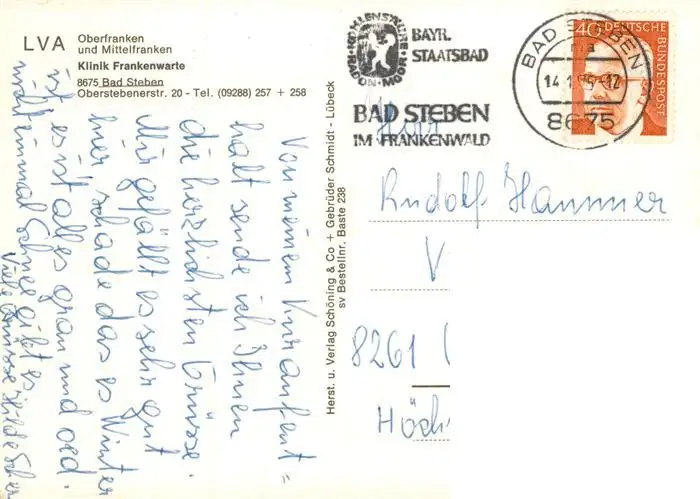 LVA
Oberfranken
und Mittelfranken
Klinik Frankenwarte
8675 Bad Steben
Oberstebenerstr. 20 - Tel. (09288) 257 + 258
Von meinem Kuraufent=
halt sende ich Ihnen
die herzlichsten Grüsse.
Mir gefällt es sehr gut
hier schade das es Winter
ist es ist alles grau und oed.
nicht einmal Schnee gibt es
Viele Grüsse Hilde
Herst. u. Verlag Schöning & Co + Gebrüder Schmidt - Lübeck
sv Bestellnr. Baste 238
KOHLENSÄURE · RADON · MOOR
BAYR.
STAATSBAD
BAD STEBEN
IM FRANKENWALD
BAD STEBEN
14.1.
8675
40 DEUTSCHE
BUNDESPOST
Herr
Rudolf Hammer
V
8261
Höch